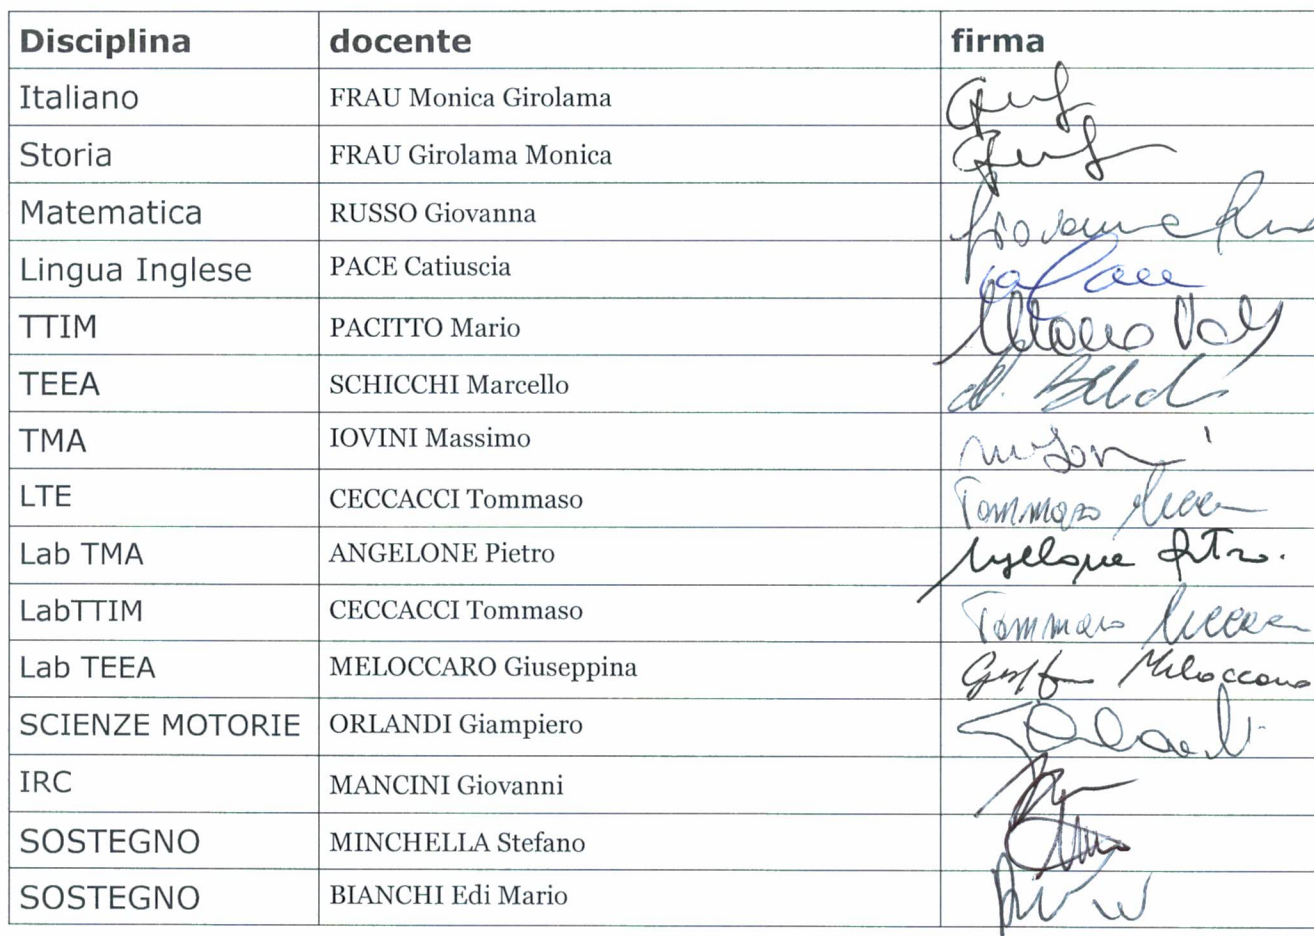 Disciplina docente firma
Italiano FRAU Monica Girolama
Storia FRAU Girolama Monica
Matematica RUSSO Giovanna Giovanna
Lingua Inglese PACE Catiuscia
TTIM PACITTO Mario
TEEA SCHICCHI Marcello
TMA IOVINI Massimo
LTE CECCACCI Tommaso Tommaso
Lab TMA ANGELONE Pietro
LabTTIM CECCACCI Tommaso Tommaso
Lab TEEA MELOCCARO Giuseppina Meloccaro
SCIENZE MOTORIE ORLANDI Giampiero
IRC MANCINI Giovanni
SOSTEGNO MINCHELLA Stefano
SOSTEGNO BIANCHI Edi Mario